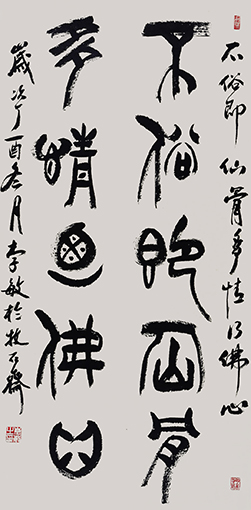 不俗即仙骨多情乃佛心
不俗即仙骨
多情乃佛心
歲次丁酉冬月李敏於牧石齋